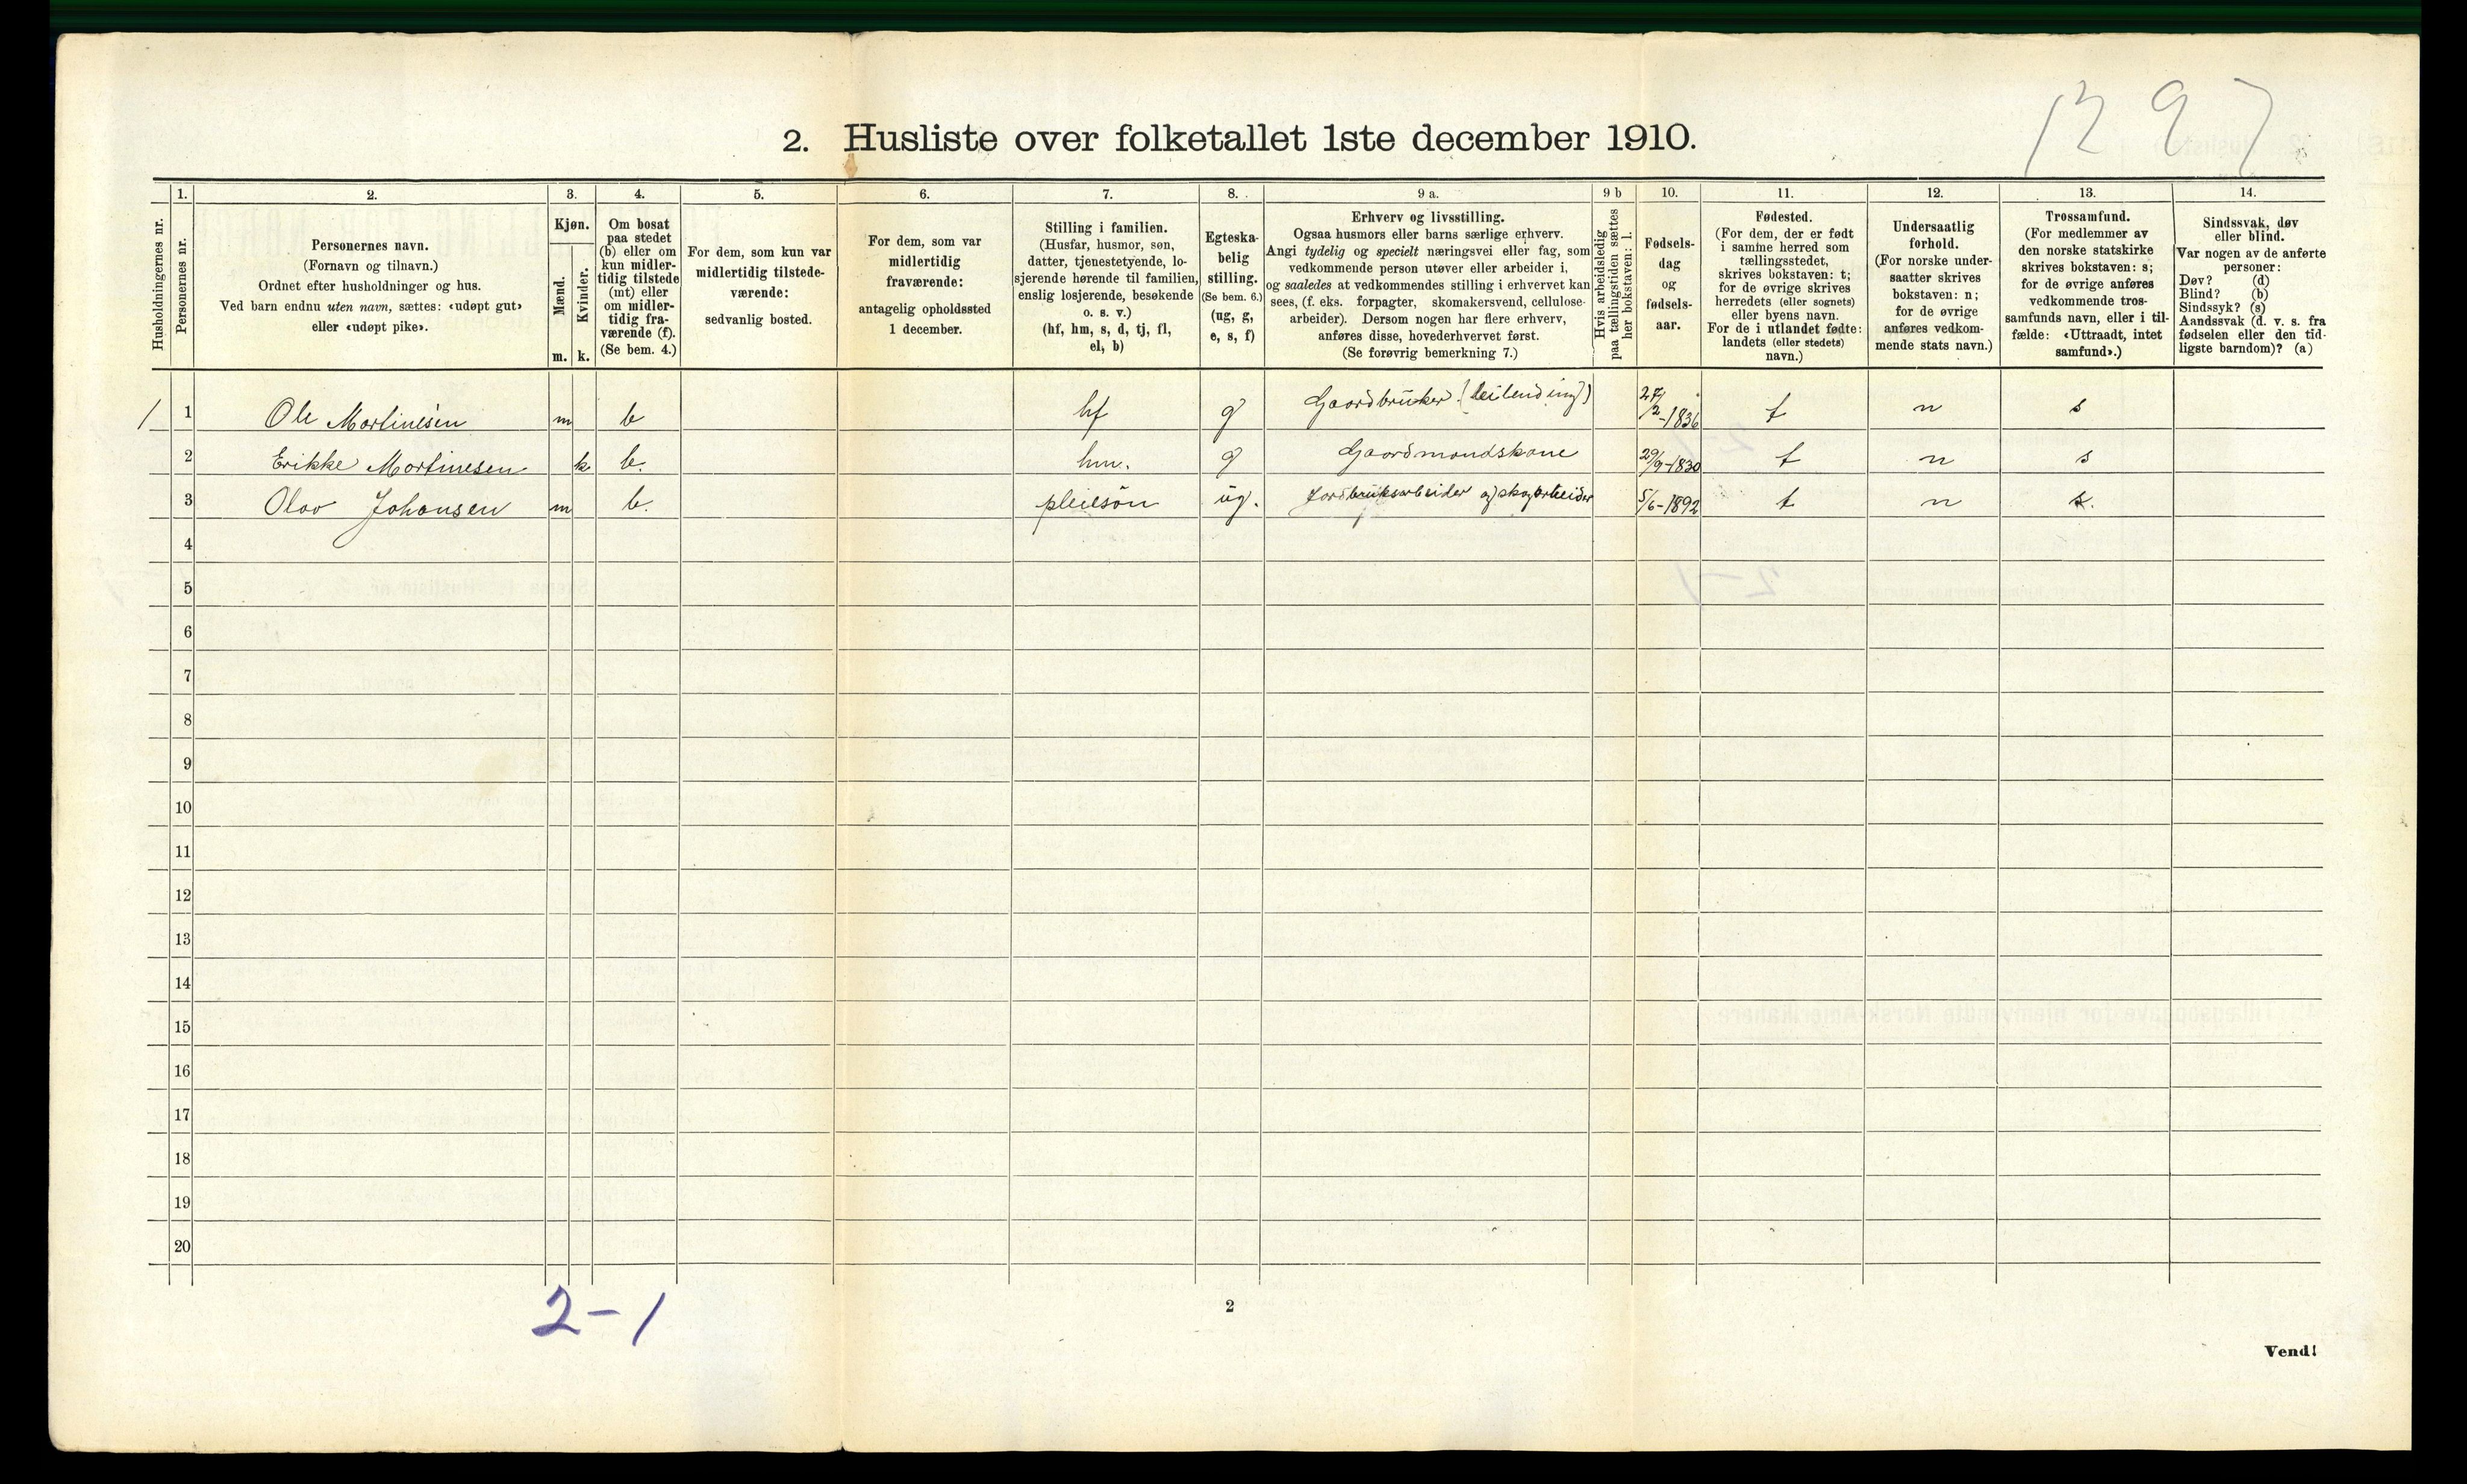 1297
2. Husliste over folketallet 1ste december 1910.
1. 2. 3. 4. 5. 6. 7. 8. 9 a. 9 b 10. 11. 12. 13. 14.
Husholdningernes nr.
Personernes nr.
Personernes navn.
(Fornavn og tilnavn.)
Ordnet efter husholdninger og hus.
Ved barn endnu uten navn, sættes: «udøpt gut»
eller «udøpt pike».
Kjøn.
Mænd.
Kvinder.
m. k.
Om bosat
paa stedet
(b) eller om
kun midler-
tidig tilstede
(mt) eller
om midler-
tidig fra-
værende (f).
(Se bem. 4.)
For dem, som kun var
midlertidig tilstede-
værende:
sedvanlig bosted.
For dem, som var
midlertidig
fraværende:
antagelig opholdssted
1 december.
Stilling i familien.
(Husfar, husmor, søn,
datter, tjenestetyende, lo-
sjerende hørende til familien,
enslig losjerende, besøkende
o. s. v.)
(hf, hm, s, d, tj, fl,
el, b)
Egteska-
belig
stilling.
(Se bem. 6.)
(ug, g,
e, s, f)
Erhverv og livsstilling.
Ogsaa husmors eller barns særlige erhverv.
Angi tydelig og specielt næringsvei eller fag, som
vedkommende person utøver eller arbeider i,
og saaledes at vedkommendes stilling i erhvervet kan
sees, (f. eks. forpagter, skomakersvend, cellulose-
arbeider). Dersom nogen har flere erhverv,
anføres disse, hovederhvervet først.
(Se forøvrig bemerkning 7.)
Hvis arbeidsledig
paa tællingstiden sættes
her bokstaven: l.
Fødsels-
dag
og
fødsels-
aar.
Fødested.
(For dem, der er født
i samme herred som
tællingsstedet,
skrives bokstaven: t;
for de øvrige skrives
herredets (eller sognets)
eller byens navn.
For de i utlandet fødte:
landets (eller stedets)
navn.)
Undersaatlig
forhold.
(For norske under-
saatter skrives
bokstaven: n;
for de øvrige
anføres vedkom-
mende stats navn.)
Trossamfund.
(For medlemmer av
den norske statskirke
skrives bokstaven: s;
for de øvrige anføres
vedkommende tros-
samfunds navn, eller i til-
fælde: «Uttraadt, intet
samfund».)
Sindssvak, døv
eller blind.
Var nogen av de anførte
personer:
Døv? (d)
Blind? (b)
Sindssyk? (s)
Aandssvak (d. v. s. fra
fødselen eller den tid-
ligste barndom)? (a)
1 1 Ole Martinesen m b hf g Gaardbruker (leilending) 27/2-1836 t n s
2 Erikke Martinesen k b. hm. g Gaardmandskone 29/9-1830 t n s
3 Olav Johansen m b. pleiesön ug. Jordbruksarbeider og skogarbeider 5/6-1892 t n s.
4
5
6
7
8
9
10
11
12
13
14
15
16
17
18
19
20
2-1
2
Vend!